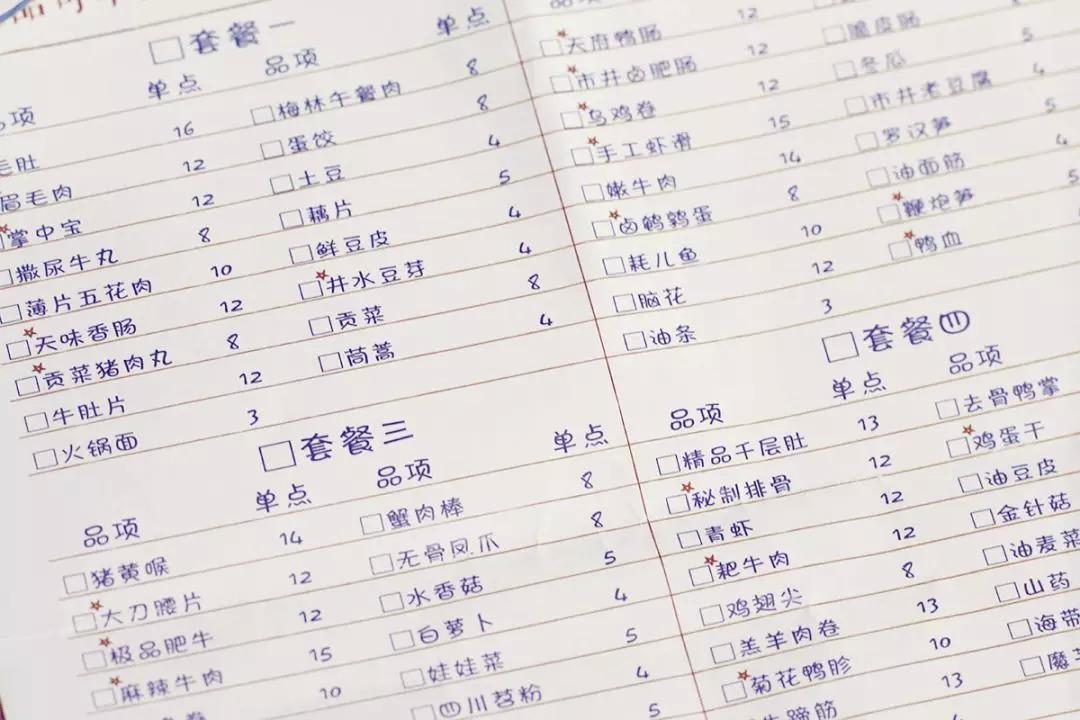 套餐一
品项 单点 品项 单点
毛肚 16 梅林午餐肉 8
眉毛肉 12 蛋饺 8
掌中宝 12 土豆 4
撒尿牛丸 8 藕片 5
薄片五花肉 10 鲜豆皮 4
天味香肠 12 井水豆芽 4
贡菜猪肉丸 8 贡菜 8
牛肚片 12 茼蒿 4
火锅面 3
套餐三
品项 单点 品项 单点
猪黄喉 14 蟹肉棒 8
大刀腰片 12 无骨凤爪 8
极品肥牛 12 水香菇 5
麻辣牛肉 15 白萝卜 4
卷 10 娃娃菜 5
四川苕粉 4
5
品项
天府鸭肠 12
市井卤肥肠 12 脆皮肠
乌鸡卷 12 冬瓜 5
手工虾滑 15 市井老豆腐 4
嫩牛肉 14 罗汉笋 5
卤鹌鹑蛋 8 油面筋 4
耗儿鱼 10 鞭炮笋 5
脑花 12 鸭血
油条 3
套餐四
品项 单点 品项
精品千层肚 13 去骨鸭掌
秘制排骨 12 鸡蛋干
青虾 12 油豆皮
耙牛肉 12 金针菇
鸡翅尖 8 油麦菜
羔羊肉卷 13 山药
菊花鸭胗 10 海带
牛蹄筋 13 魔